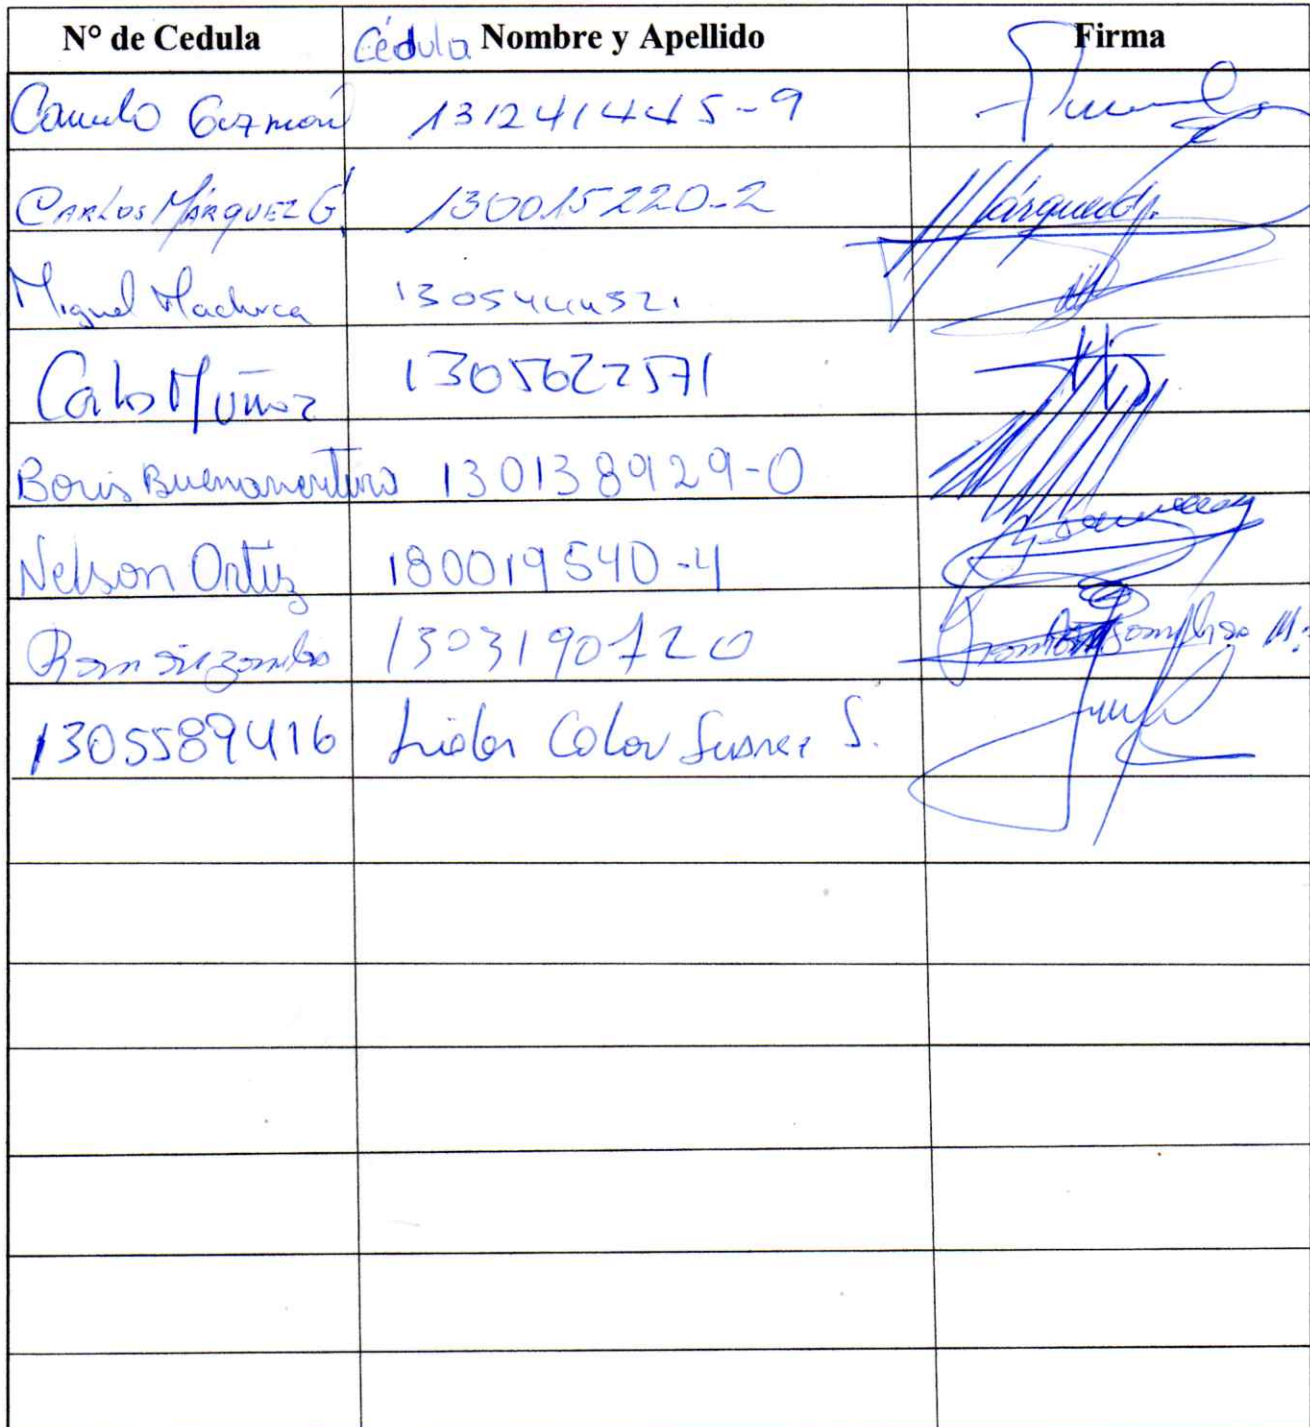 N° de Cedula Cédula Nombre y Apellido Firma
Camilo Guzmán 131241445-9
CARLOS MÁRQUEZ G. 130015220-2 Márquez G.
Miguel Machuca
Carlos Muñoz 1305622571
Boris Buenaventura 130138929-0
Nelson Ortiz 180019540-4
1303190720
1305589416 Colon Suarez S.